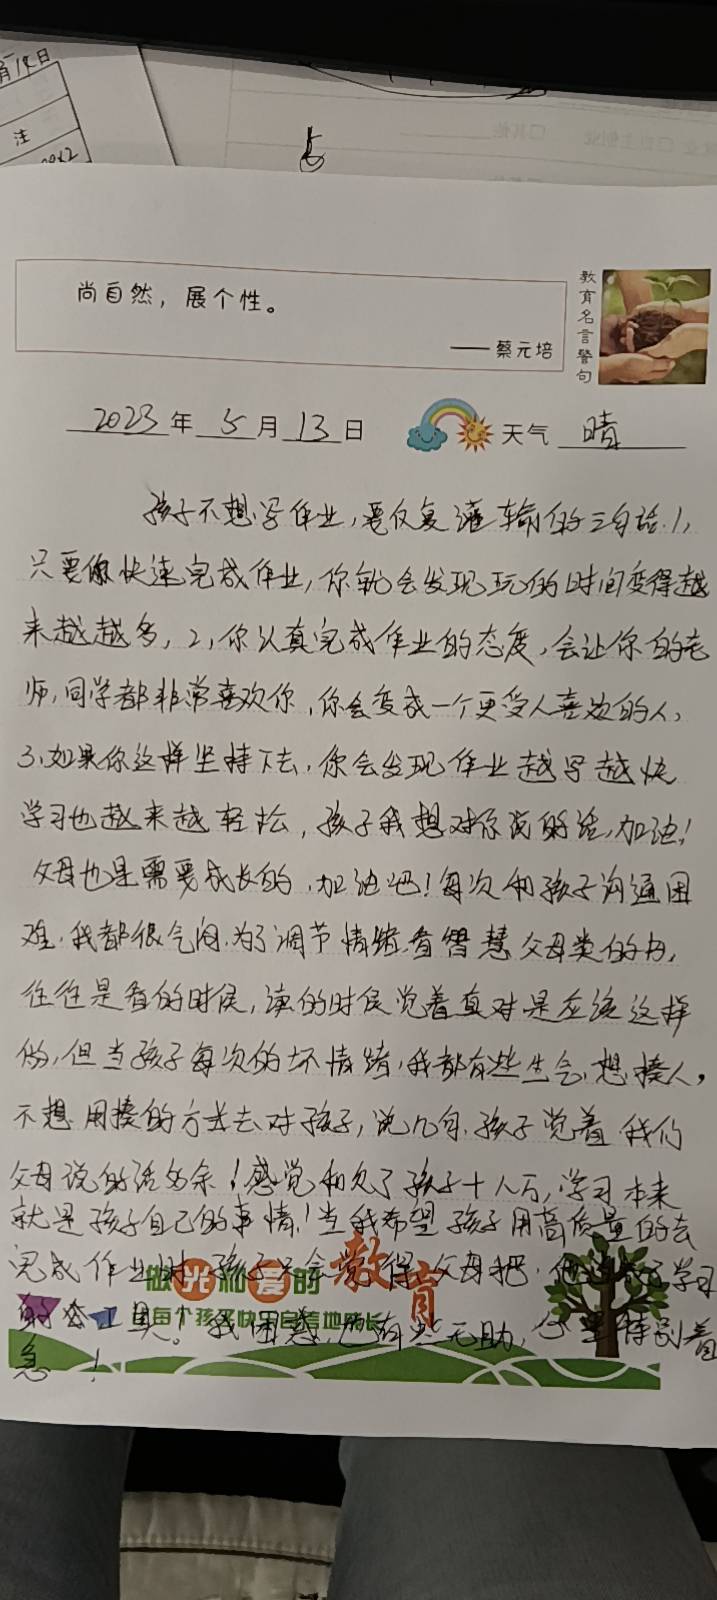 月14日
注
尚自然，展个性。
——蔡元培
教育名言警句
2023年5月13日 天气 晴
孩子不想写作业，要反复灌输的三句话.1，
只要你快速完成作业，你就会发现玩的时间变得越
来越越多，2，你认真完成作业的态度，会让你的老
师，同学都非常喜欢你，你会变成一个更受人喜欢的人，
3、如果你这样坚持下去，你会发现作业越写越快
学习也越来越轻松，孩子我想对你说的话，加油！
父母也是需要成长的，加油吧！每次和孩子沟通困
难，我都很气闷.为了调节情绪，看智慧父母类的书，
往往是看的时候，读的时候觉着真对是应该这样
做，但当孩子每次的坏情绪，我都有些生气，想揍人，
不想用揍的方式去对孩子，说几句，孩子觉着我们
父母说的话多余！感觉和欠了孩子十八万，学习本来
就是孩子自己的事情！当我希望孩子用高质量的去
完成作业时，孩子只会觉得父母把，他当成了学习
的工具！我困惑，也有些无助，心里特别着
急！
做光和爱的教育
每个孩子快乐自若地成长